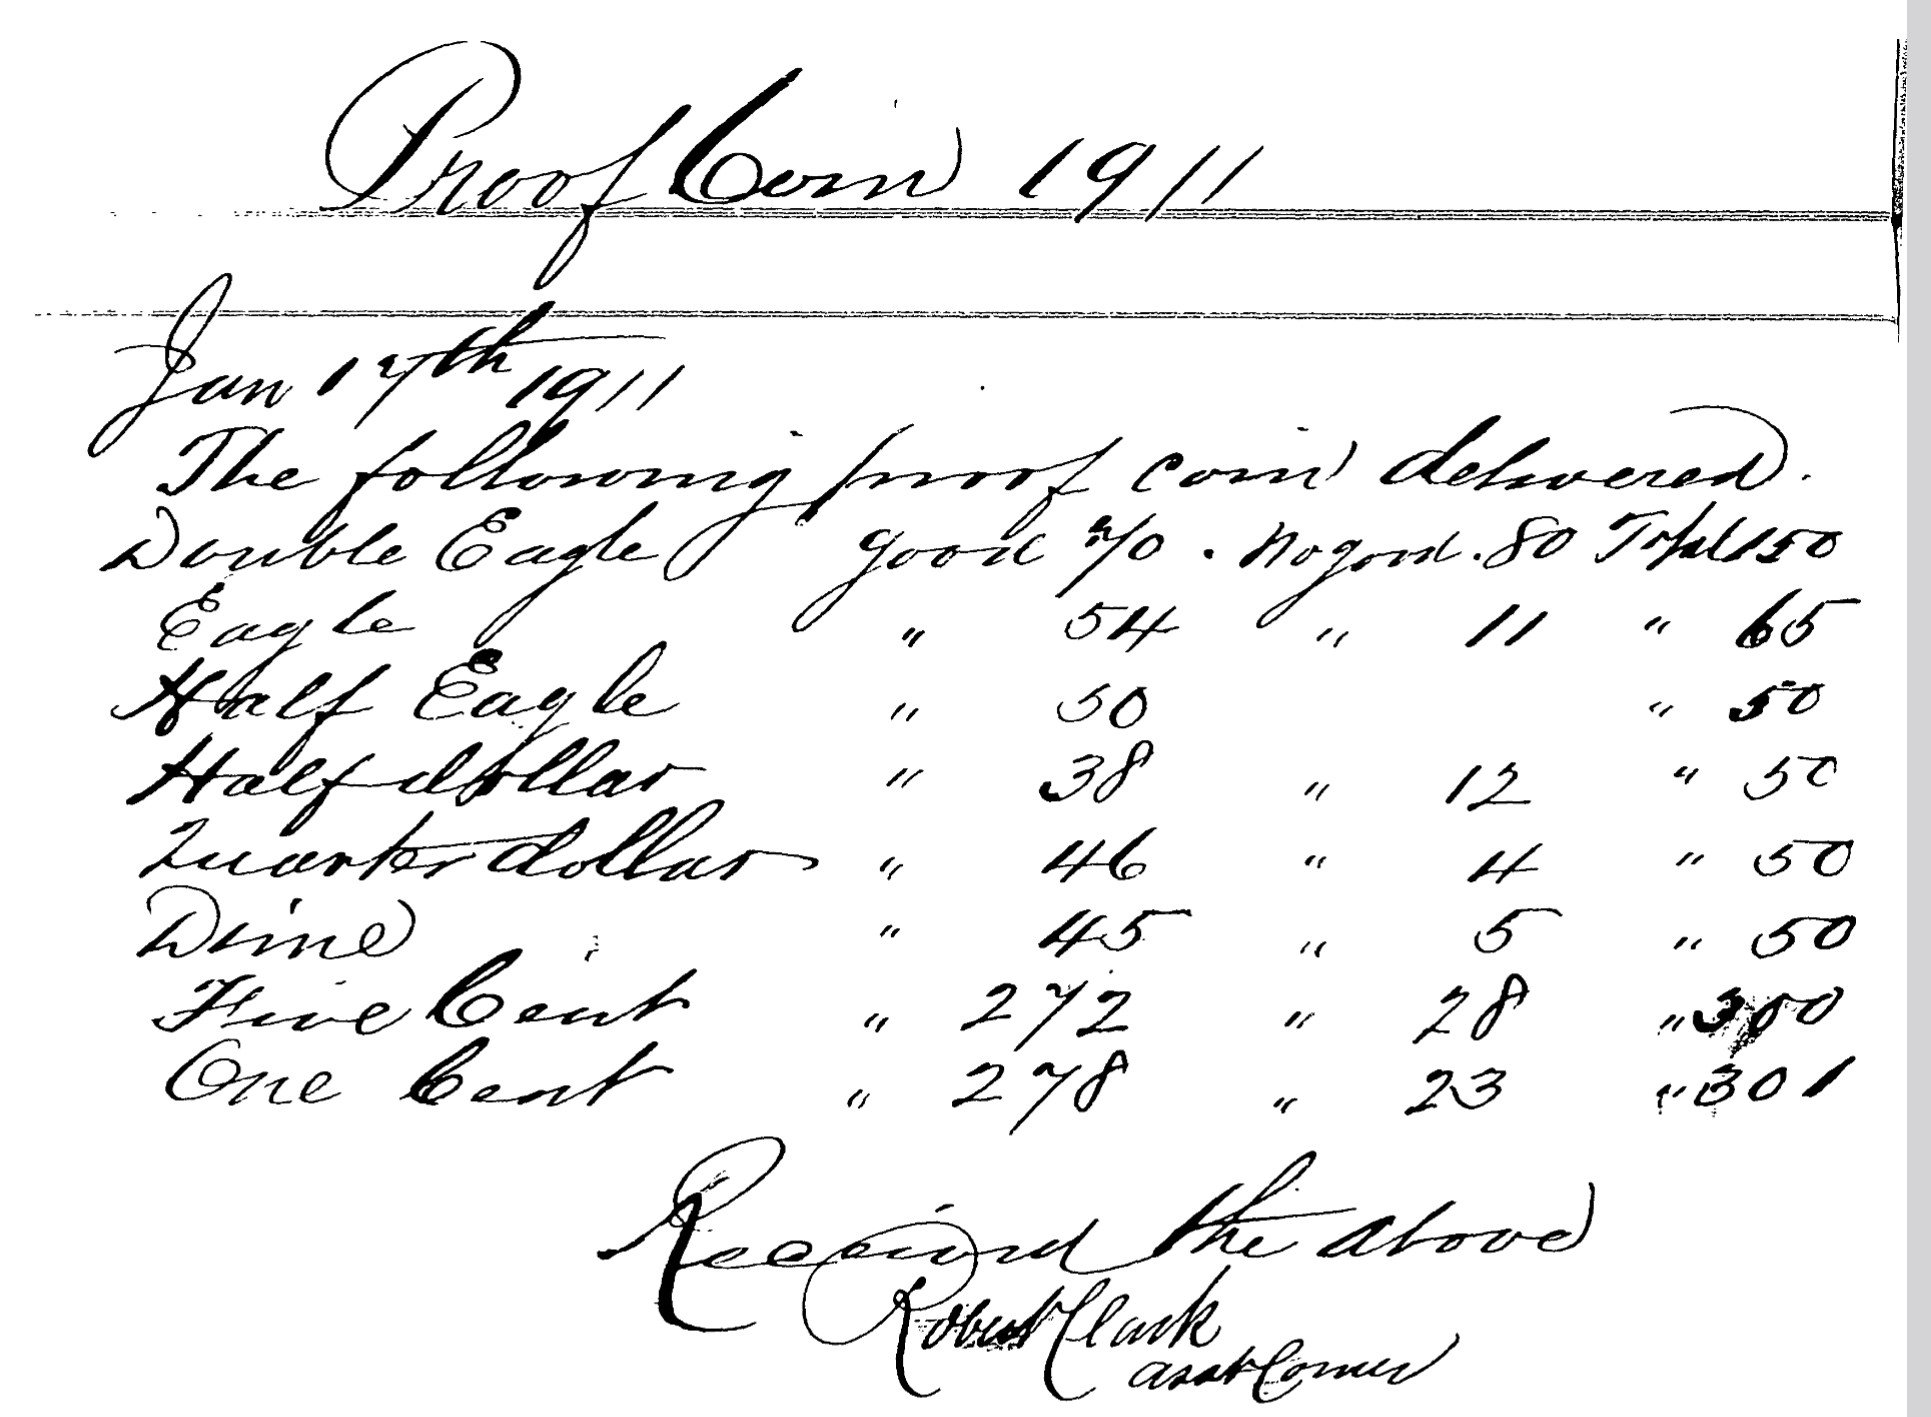 Proof Coin 1911
Jan 17th 1911
The following proof coin delivered.
Double Eagle good 70 . no good . 80 Total 150
Eagle " 54 " 11 " 65
Half Eagle " 50 " 50
Half dollar " 38 " 12 " 50
Quarter dollar " 46 " 4 " 50
Dime " 45 " 5 " 50
Five Cent " 272 " 28 " 300
One Cent " 278 " 23 " 301
Received the above
Robert Clark
asst Coiner